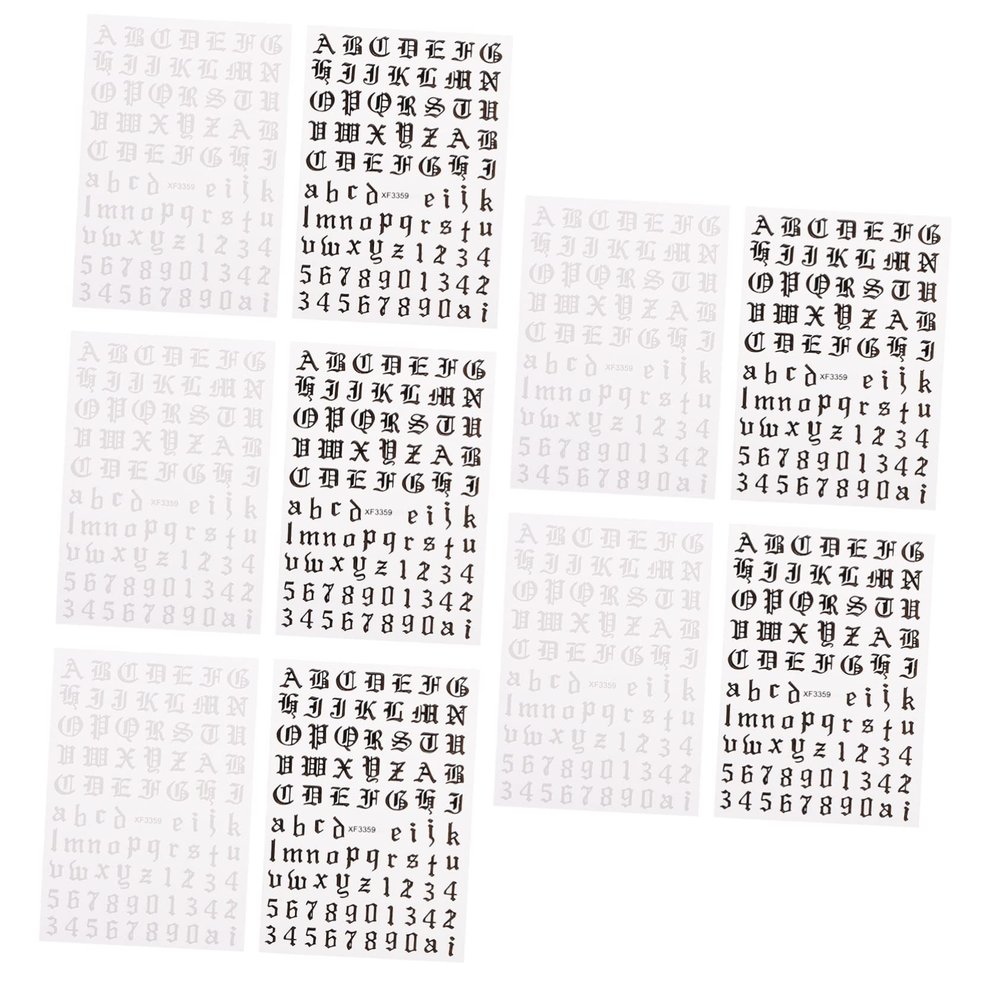 A B C D E F G
H I J K L M N
O P Q R S T U
V W X Y Z A B
C D E F G H I
a b c d XF3359 e i j k
l m n o p q r s t u
v w x y z 1 2 3 4
5 6 7 8 9 0 1 3 4 2
3 4 5 6 7 8 9 0 a i
A B C D E F G
H I J K L M N
O P Q R S T U
V W X Y Z A B
C D E F G H I
a b c d XF3359 e i j k
l m n o p q r s t u
v w x y z 1 2 3 4
5 6 7 8 9 0 1 3 4 2
3 4 5 6 7 8 9 0 a i
A B C D E F G
H I J K L M N
O P Q R S T U
V W X Y Z A B
C D E F G H I
a b c d XF3359 e i j k
l m n o p q r s t u
v w x y z 1 2 3 4
5 6 7 8 9 0 1 3 4 2
3 4 5 6 7 8 9 0 a i
A B C D E F G
H I J K L M N
O P Q R S T U
V W X Y Z A B
C D E F G H I
a b c d XF3359 e i j k
l m n o p q r s t u
v w x y z 1 2 3 4
5 6 7 8 9 0 1 3 4 2
3 4 5 6 7 8 9 0 a i
A B C D E F G
H I J K L M N
O P Q R S T U
V W X Y Z A B
C D E F G H I
a b c d XF3359 e i j k
l m n o p q r s t u
v w x y z 1 2 3 4
5 6 7 8 9 0 1 3 4 2
3 4 5 6 7 8 9 0 a i
A B C D E F G
H I J K L M N
O P Q R S T U
V W X Y Z A B
C D E F G H I
a b c d XF3359 e i j k
l m n o p q r s t u
v w x y z 1 2 3 4
5 6 7 8 9 0 1 3 4 2
3 4 5 6 7 8 9 0 a i
A B C D E F G
H I J K L M N
O P Q R S T U
V W X Y Z A B
C D E F G H I
a b c d XF3359 e i j k
l m n o p q r s t u
v w x y z 1 2 3 4
5 6 7 8 9 0 1 3 4 2
3 4 5 6 7 8 9 0 a i
A B C D E F G
H I J K L M N
O P Q R S T U
V W X Y Z A B
C D E F G H I
a b c d XF3359 e i j k
l m n o p q r s t u
v w x y z 1 2 3 4
5 6 7 8 9 0 1 3 4 2
3 4 5 6 7 8 9 0 a i
A B C D E F G
H I J K L M N
O P Q R S T U
V W X Y Z A B
C D E F G H I
a b c d XF3359 e i j k
l m n o p q r s t u
v w x y z 1 2 3 4
5 6 7 8 9 0 1 3 4 2
3 4 5 6 7 8 9 0 a i
A B C D E F G
H I J K L M N
O P Q R S T U
V W X Y Z A B
C D E F G H I
a b c d XF3359 e i j k
l m n o p q r s t u
v w x y z 1 2 3 4
5 6 7 8 9 0 1 3 4 2
3 4 5 6 7 8 9 0 a i